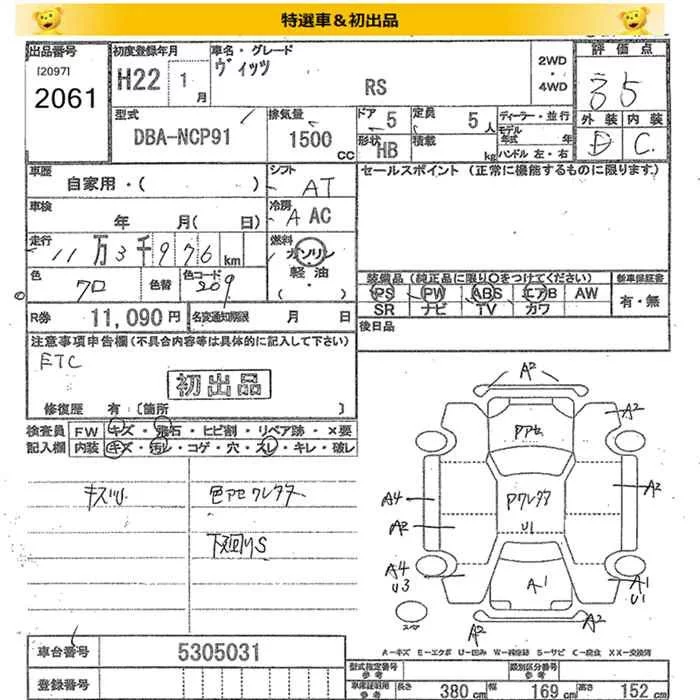 特選車＆初出品
出品番号
[2097]
2061
初度登録年月
H22 1 月
車名・グレード
ヴィッツ
RS
2WD
・
4WD
評価点
3.5
外装 内装
D C
型式
DBA-NCP91
排気量
1500 CC
ドア 5
定員 5 人
形状 HB
積載 kg
ディーラー・並行
モデル年式 年
ハンドル 左・右
車歴
自家用・( )
シフト
AT
車検
年 月( 日)
冷房
A AC
走行
11万3千976 km
燃料
ガソリン
軽・油
(・)
色
クロ
色替
色コード
209
R券 11,090 円
名変通知期限 月 日
セールスポイント (正常に機能するものに限ります。)
装備品 (純正品に限り〇をつけてください)
PS PW ABS エアB AW
SR ナビ TV カワ
新車保証書
有・無
後日品
注意事項申告欄 (不具合内容等は具体的に記入して下さい)
ETC
初出品
修復歴 有 [箇所 ]
検査員記入欄
FW キズ・飛石・ヒビ割・リペア跡・×要
内装 キズ・汚レ・コゲ・穴・スレ・キレ・破レ
キズU
色アセ クレクタ
下廻りS
A2
A2
Pアセ
A4
A2
Pクレクタ
U1
A2
A4
U3
A1
A1
U1
スペア
A2
A2
A-キズ E-エクボ U-凹み W-補修跡 S-サビ C-腐食 XX-交換済
車台番号 5305031
登録番号
型式指定番号 参考
類別区分番号 参考
車庫証明用 参考
長さ 380 cm
幅 169 cm
高さ 152 cm